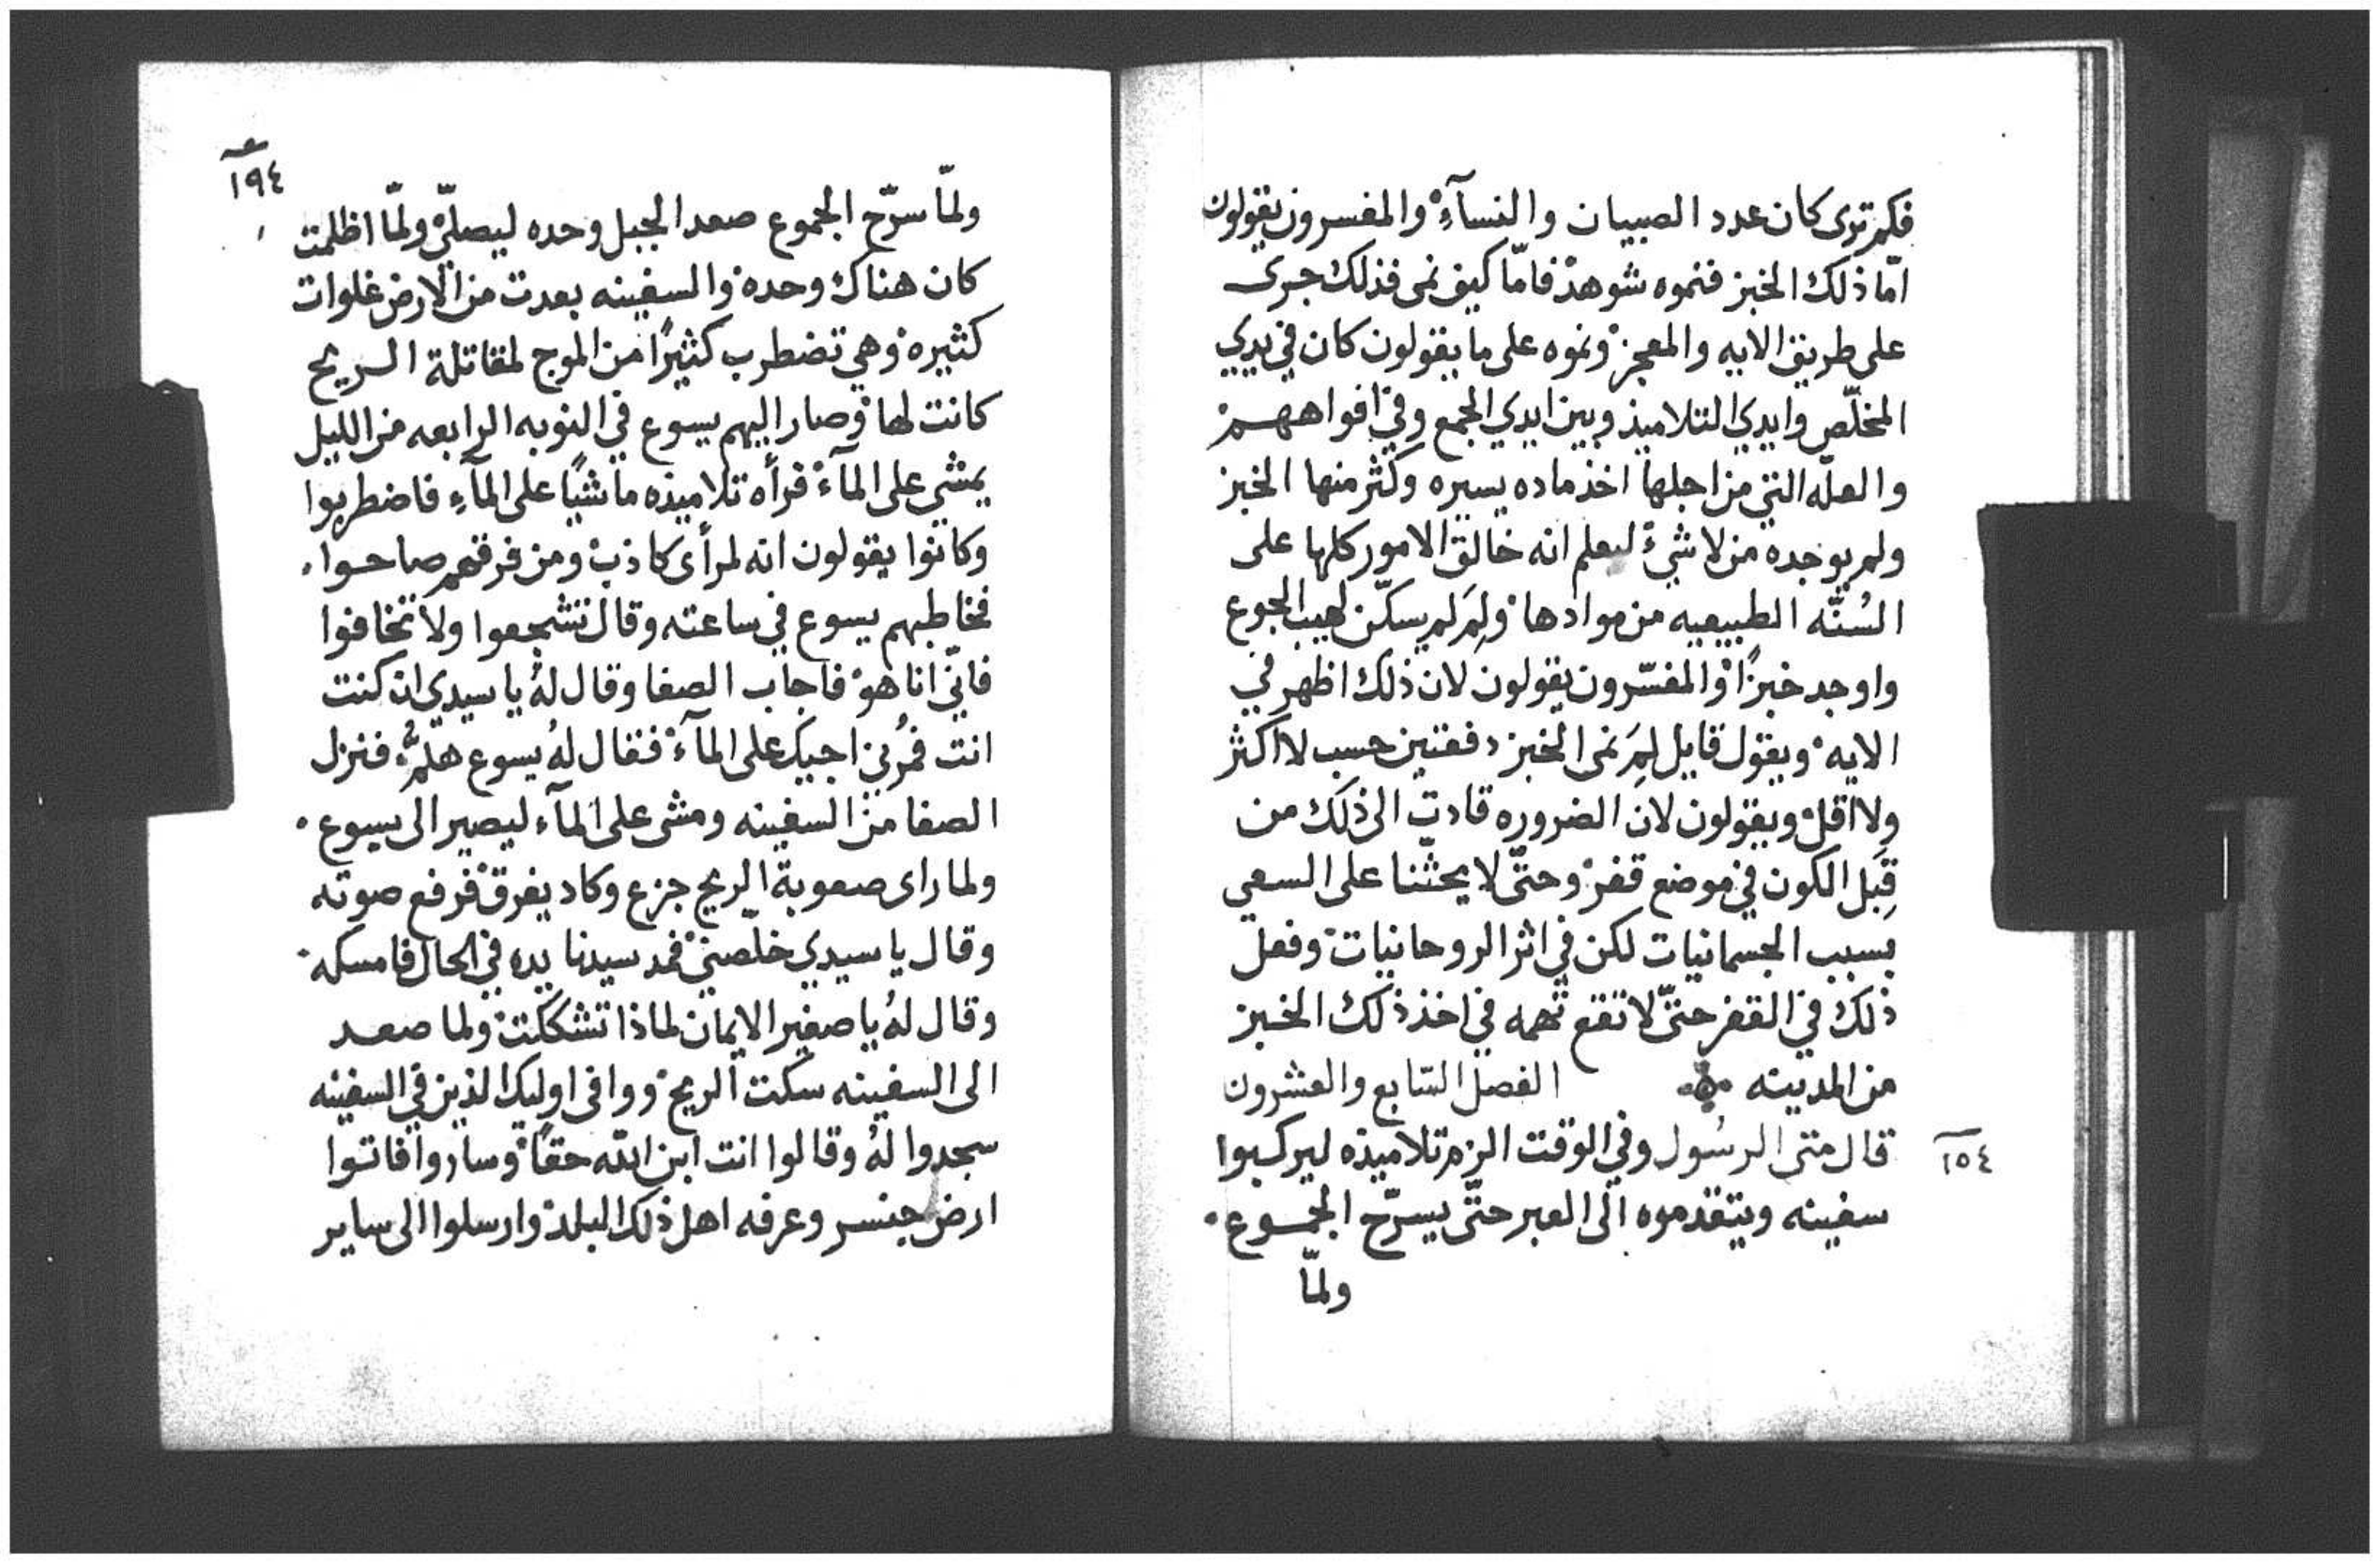 فكم ترى كان عدد الصبيان والنسآءِ والمفسرون يقولون
امّا ذلك الخبز فنموه شوهد فامّا كيف نمى فذلك جرى
على طريق الايه والمعجز ونموه على ما يقولون كان في يدي
المخلّص وايدي التلاميذ وبين ايدي الجمع وفي افواههم
والعلّه التي من اجلها اخذ ماده يسيره وكثّر منها الخبز
ولم يوجده من لا شيءً ليعلم انه خالق الامور كلها على
السُنّه الطبيعيه من موادها ولِمَ لم يسكّن لهيب الجوع
واوجد خبزًا والمفسّرون يقولون لان ذلك اظهر في
الايه ويقول قايل لِمَ نمى الخبز دفعتين حسب لا اكثر
ولا اقل ويقولون لان الضروره قادت الى ذلك من
قِبَل الكون في موضع قفر وحتّى لا يحثّنا على السعي
بسبب الجسمانيات لكن في اثر الروحانيات وفعل
ذلك في القفر حتّى لا تقع تهمه في اخذ ذلك الخبز
من المدينه الفصل السّابع والعشرون
١٥٤
قال متى الرسُول وفي الوقت الزم تلاميذه ليركبوا
سفينه ويتقدموه الى العبر حتّى يسرّح الجموع
ولمّا
١٩٤
ولمّا سرّح الجموع صعد الجبل وحده ليصلّي ولمّا اظلمت
كان هناك وحده والسفينه بعدت من الارض غلوات
كثيره وهي تضطرب كثيرًا من الموج لمقاتلة الريح
كانت لها وصار اليهم يسوع في النوبه الرابعه من الليل
يمشي على المآء فرأه تلاميذه ماشيًا على المآءِ فاضطربوا
وكانوا يقولون انه لمرأى كاذب ومن فرقهم صاحوا
فخاطبهم يسوع في ساعته وقال تشجعوا ولا تخافوا
فانّي انا هو فاجاب الصفا وقال لهُ يا سيدي ان كنت
انت فمُرني اجيك على المآء فقال لهُ يسوع هلمّ فنزل
الصفا من السفينه ومشى على المآء ليصير الى يسوع
ولما راى صعوبة الريح جزع وكاد يغرق فرفع صوته
وقال يا سيدي خلّصني فمد سيدنا يده في الحال فامسكه
وقال لهُ يا صغير الايمان لماذا تشككت ولما صعد
الى السفينه سكت الريح ووافى اوليك الذين في السفينه
سجدوا لهُ وقالوا انت ابن الله حقًا وساروا فاتوا
ارض جنسر وعرفه اهل ذلك البلد وارسلوا الى ساير